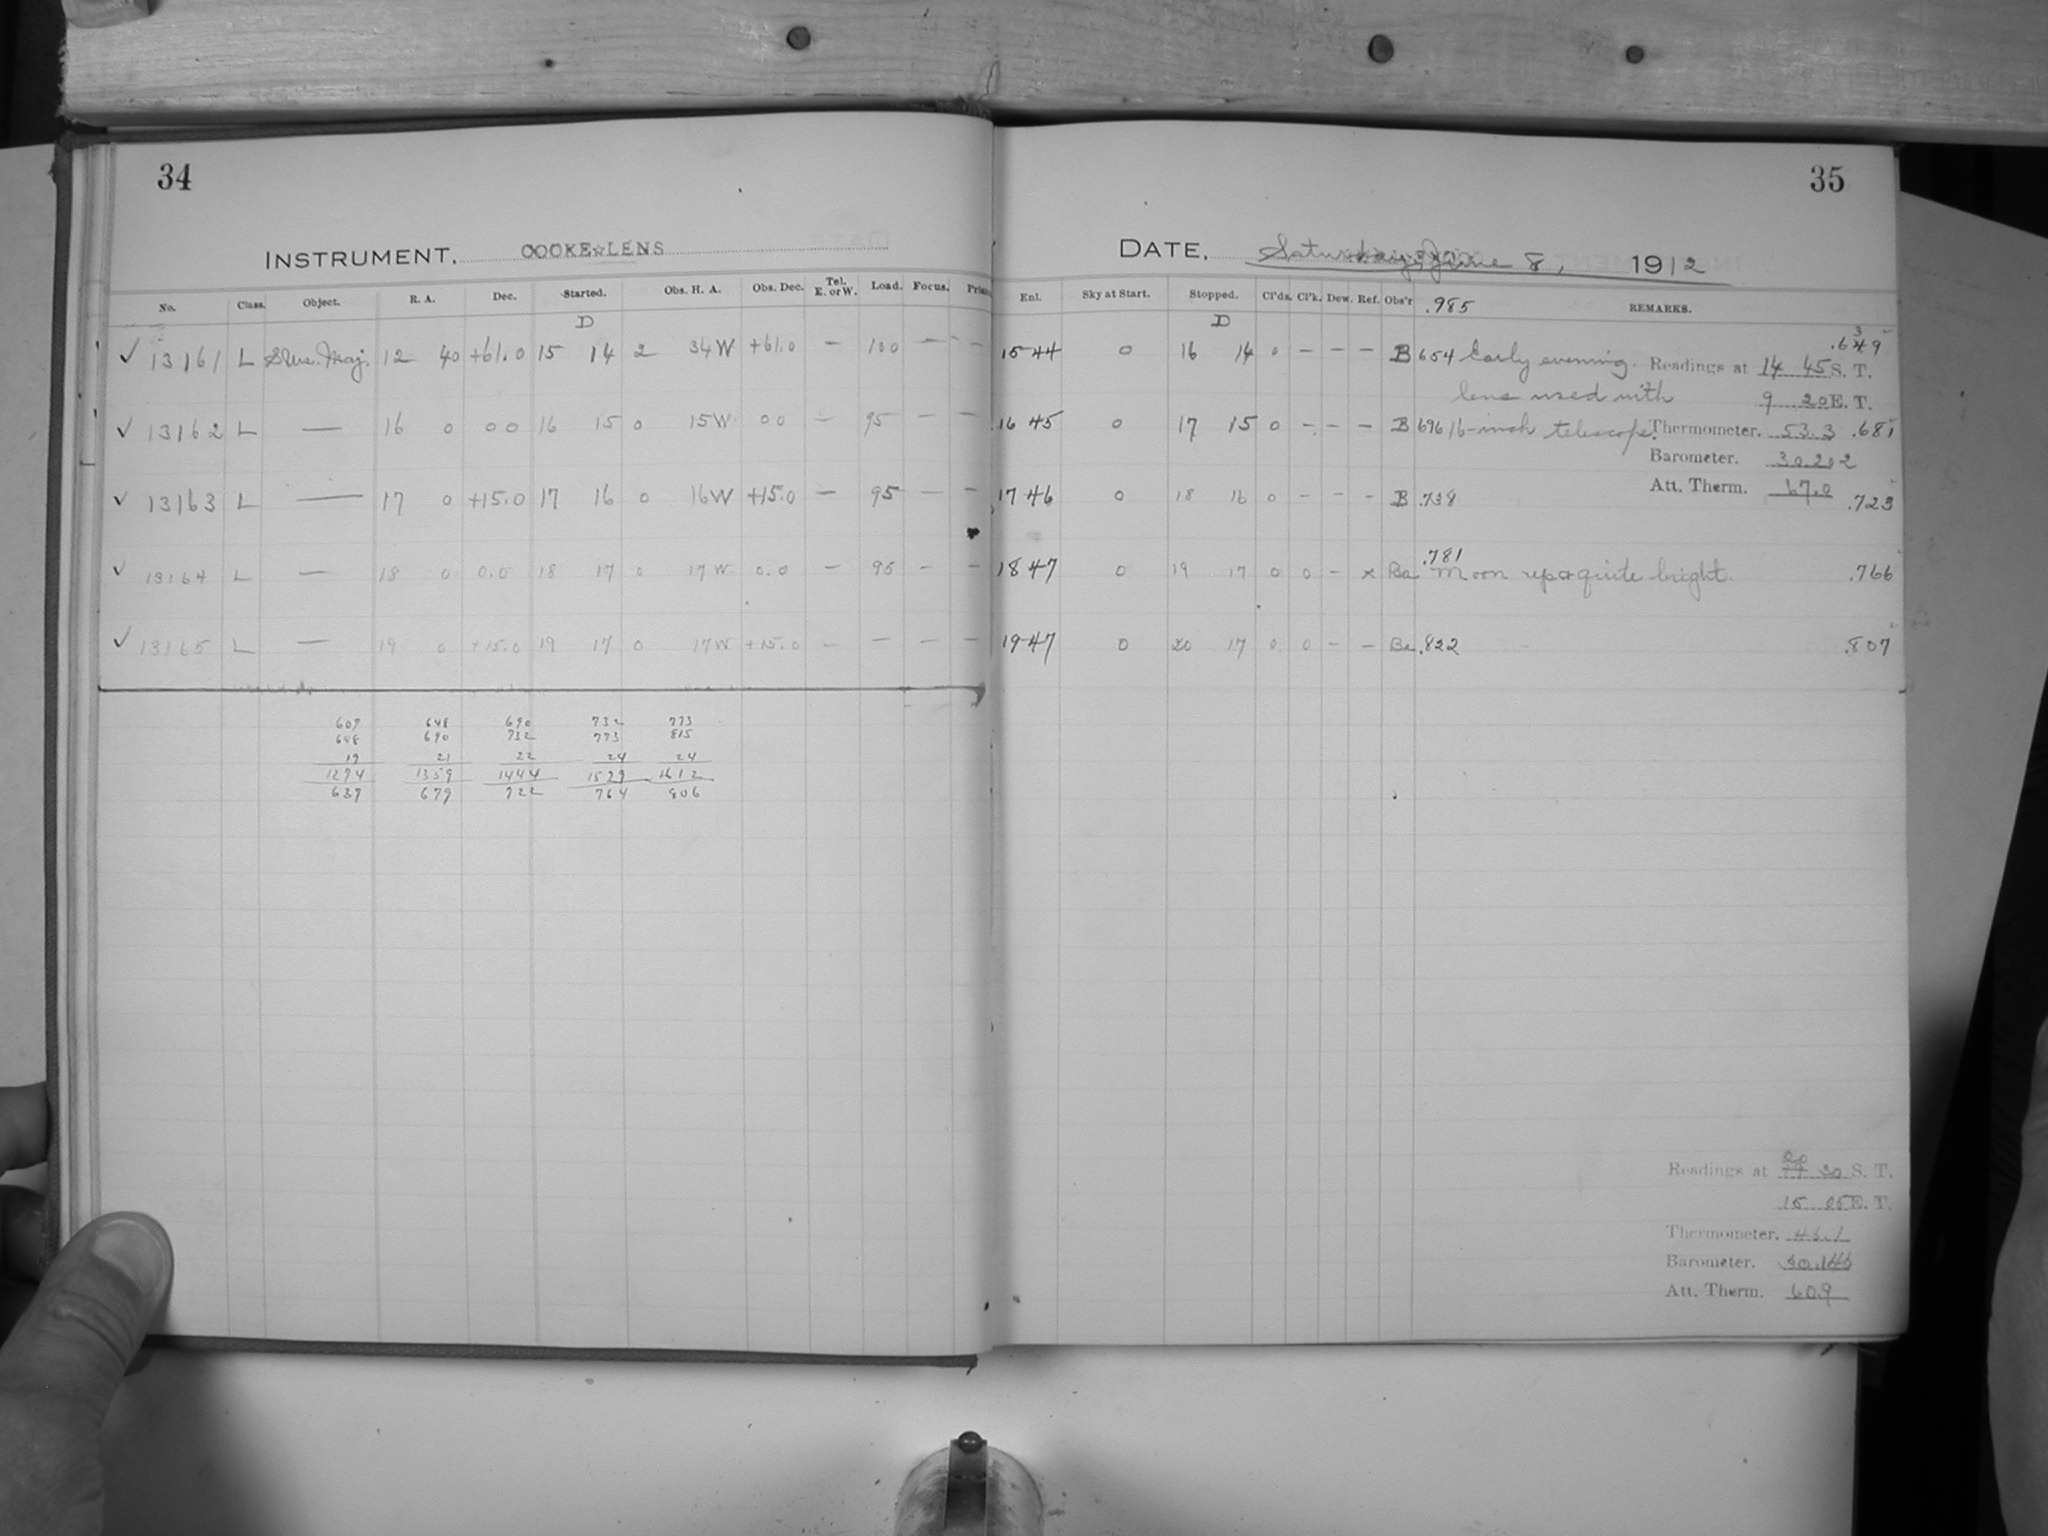 34
INSTRUMENT. COOKE☆LENS
No. Class. Object. R. A. Dec. Started. Obs. H. A. Obs. Dec. Tel. E. or W. Load. Focus.
D
✓ 13161 L S Urs. Maj. 12 40 +61.0 15 14 2 34 W +61.0 – 100 – –
✓ 13162 L — 16 0 0 0 16 15 0 15 W 0 0 – 95 – –
✓ 13163 L — 17 0 +15.0 17 16 0 16 W +15.0 – 95 – –
✓ 13164 L — 18 0 0.0 18 17 0 17 W 0.0 – 95 – –
✓ 13165 L — 19 0 +15.0 19 17 0 17 W +15.0 – – – –
607 648 690 732 773
648 690 732 773 815
19 21 22 24 24
1274 1359 1444 1529 1612
637 679 722 764 806
35
DATE. Saturday, June 8, 1912
Enl. Sky at Start. Stopped. Cl'ds. Cl'k. Dew. Ref. Obs'r .985 REMARKS.
D
15 44 0 16 14 0 – – – B 654 Early evening
Readings at 14 45 S. T.
lens used with
9 20 E. T.
16 45 0 17 15 0 – – – B 696 16-inch telescope.
Thermometer. 53.3 .681
Barometer. 30.202
Att. Therm. 67.0
17 46 0 18 16 0 – – – B .738 .723
.781
18 47 0 19 17 0 0 – x Ba Moon up & quite bright. .766
19 47 0 20 17 0 0 – – Ba .822 .807
Readings at 20 S. T.
15 05 E. T.
Thermometer.
Barometer.
Att. Therm. 60.9